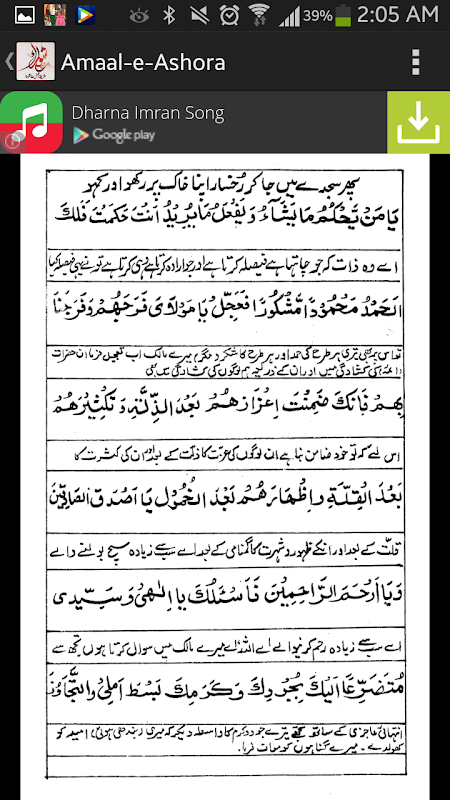 39% 2:05 AM
Amaal-e-Ashora
Dharna Imran Song
Google play
پھر سجدے میں جا کر رخسار اپنا خاک پر رکھو اور کہو
يَا مَنْ يَّحْكُمُ مَا يَشَآءُ وَيَفْعَلُ مَا يُرِيْدُ اَنْتَ حَكَمْتَ فَلَكَ
اے وہ ذات کہ جو چاہتا ہے فیصلہ کرتا ہے اور جو ارادہ کرتا ہے وہی کرتا ہے تو نے ہی فیصلہ کیا
الْحَمْدُ مَحْمُوْدًا مَّشْكُوْرًا فَعَجِّلْ يَا مَوْلَايَ فَرَجَهُمْ وَفَرَجَنَا
بِهِمْ فَاِنَّكَ ضَمِنْتَ اِعْزَازَهُمْ بَعْدَ الذِّلَّةِ وَتَكْثِيْرَهُمْ
اس لئے کہ تو خود ضامن بنا ہے ان لوگوں کی عزت کا ذلت کے بعد اور ان کی کثرت کا
بَعْدَ الْقِلَّةِ وَاِظْهَارَهُمْ بَعْدَ الْخُمُوْلِ يَا اَصْدَقَ الصَّادِقِيْنَ
قلت کے بعد اور انکے ظہور و شہرت کا گمنامی کے بعد اے سب سے زیادہ سچ بولنے والے
وَيَا اَرْحَمَ الرَّاحِمِيْنَ فَاَسْئَلُكَ يَا اِلٰهِيْ وَسَيِّدِيْ
اے سب سے زیادہ رحم کرنیوالے اے اللہ اے میرے مالک میں سوال کرتا ہوں تجھ سے
مُتَضَرِّعًا اِلَيْكَ بِجُوْدِكَ وَكَرَمِكَ بَسْطَ اَمَلِيْ وَالتَّجَاوُزَ
انتہائی عاجزی کے ساتھ تجھے تیرے جود و کرم کا واسطہ دیکر کہ میری امید کو
کھول دے۔ میرے گناہوں کو معاف فرما۔